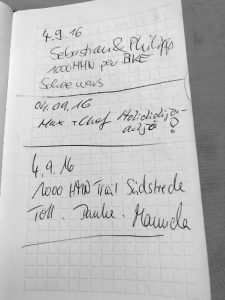 4.9.16
Sebastian & Philipp
1000 HMN per BIKE
04.09.16
Max + Chef
4.9.16
1000 HMN Trail Südstrecke
Toll. Danke. Manuela